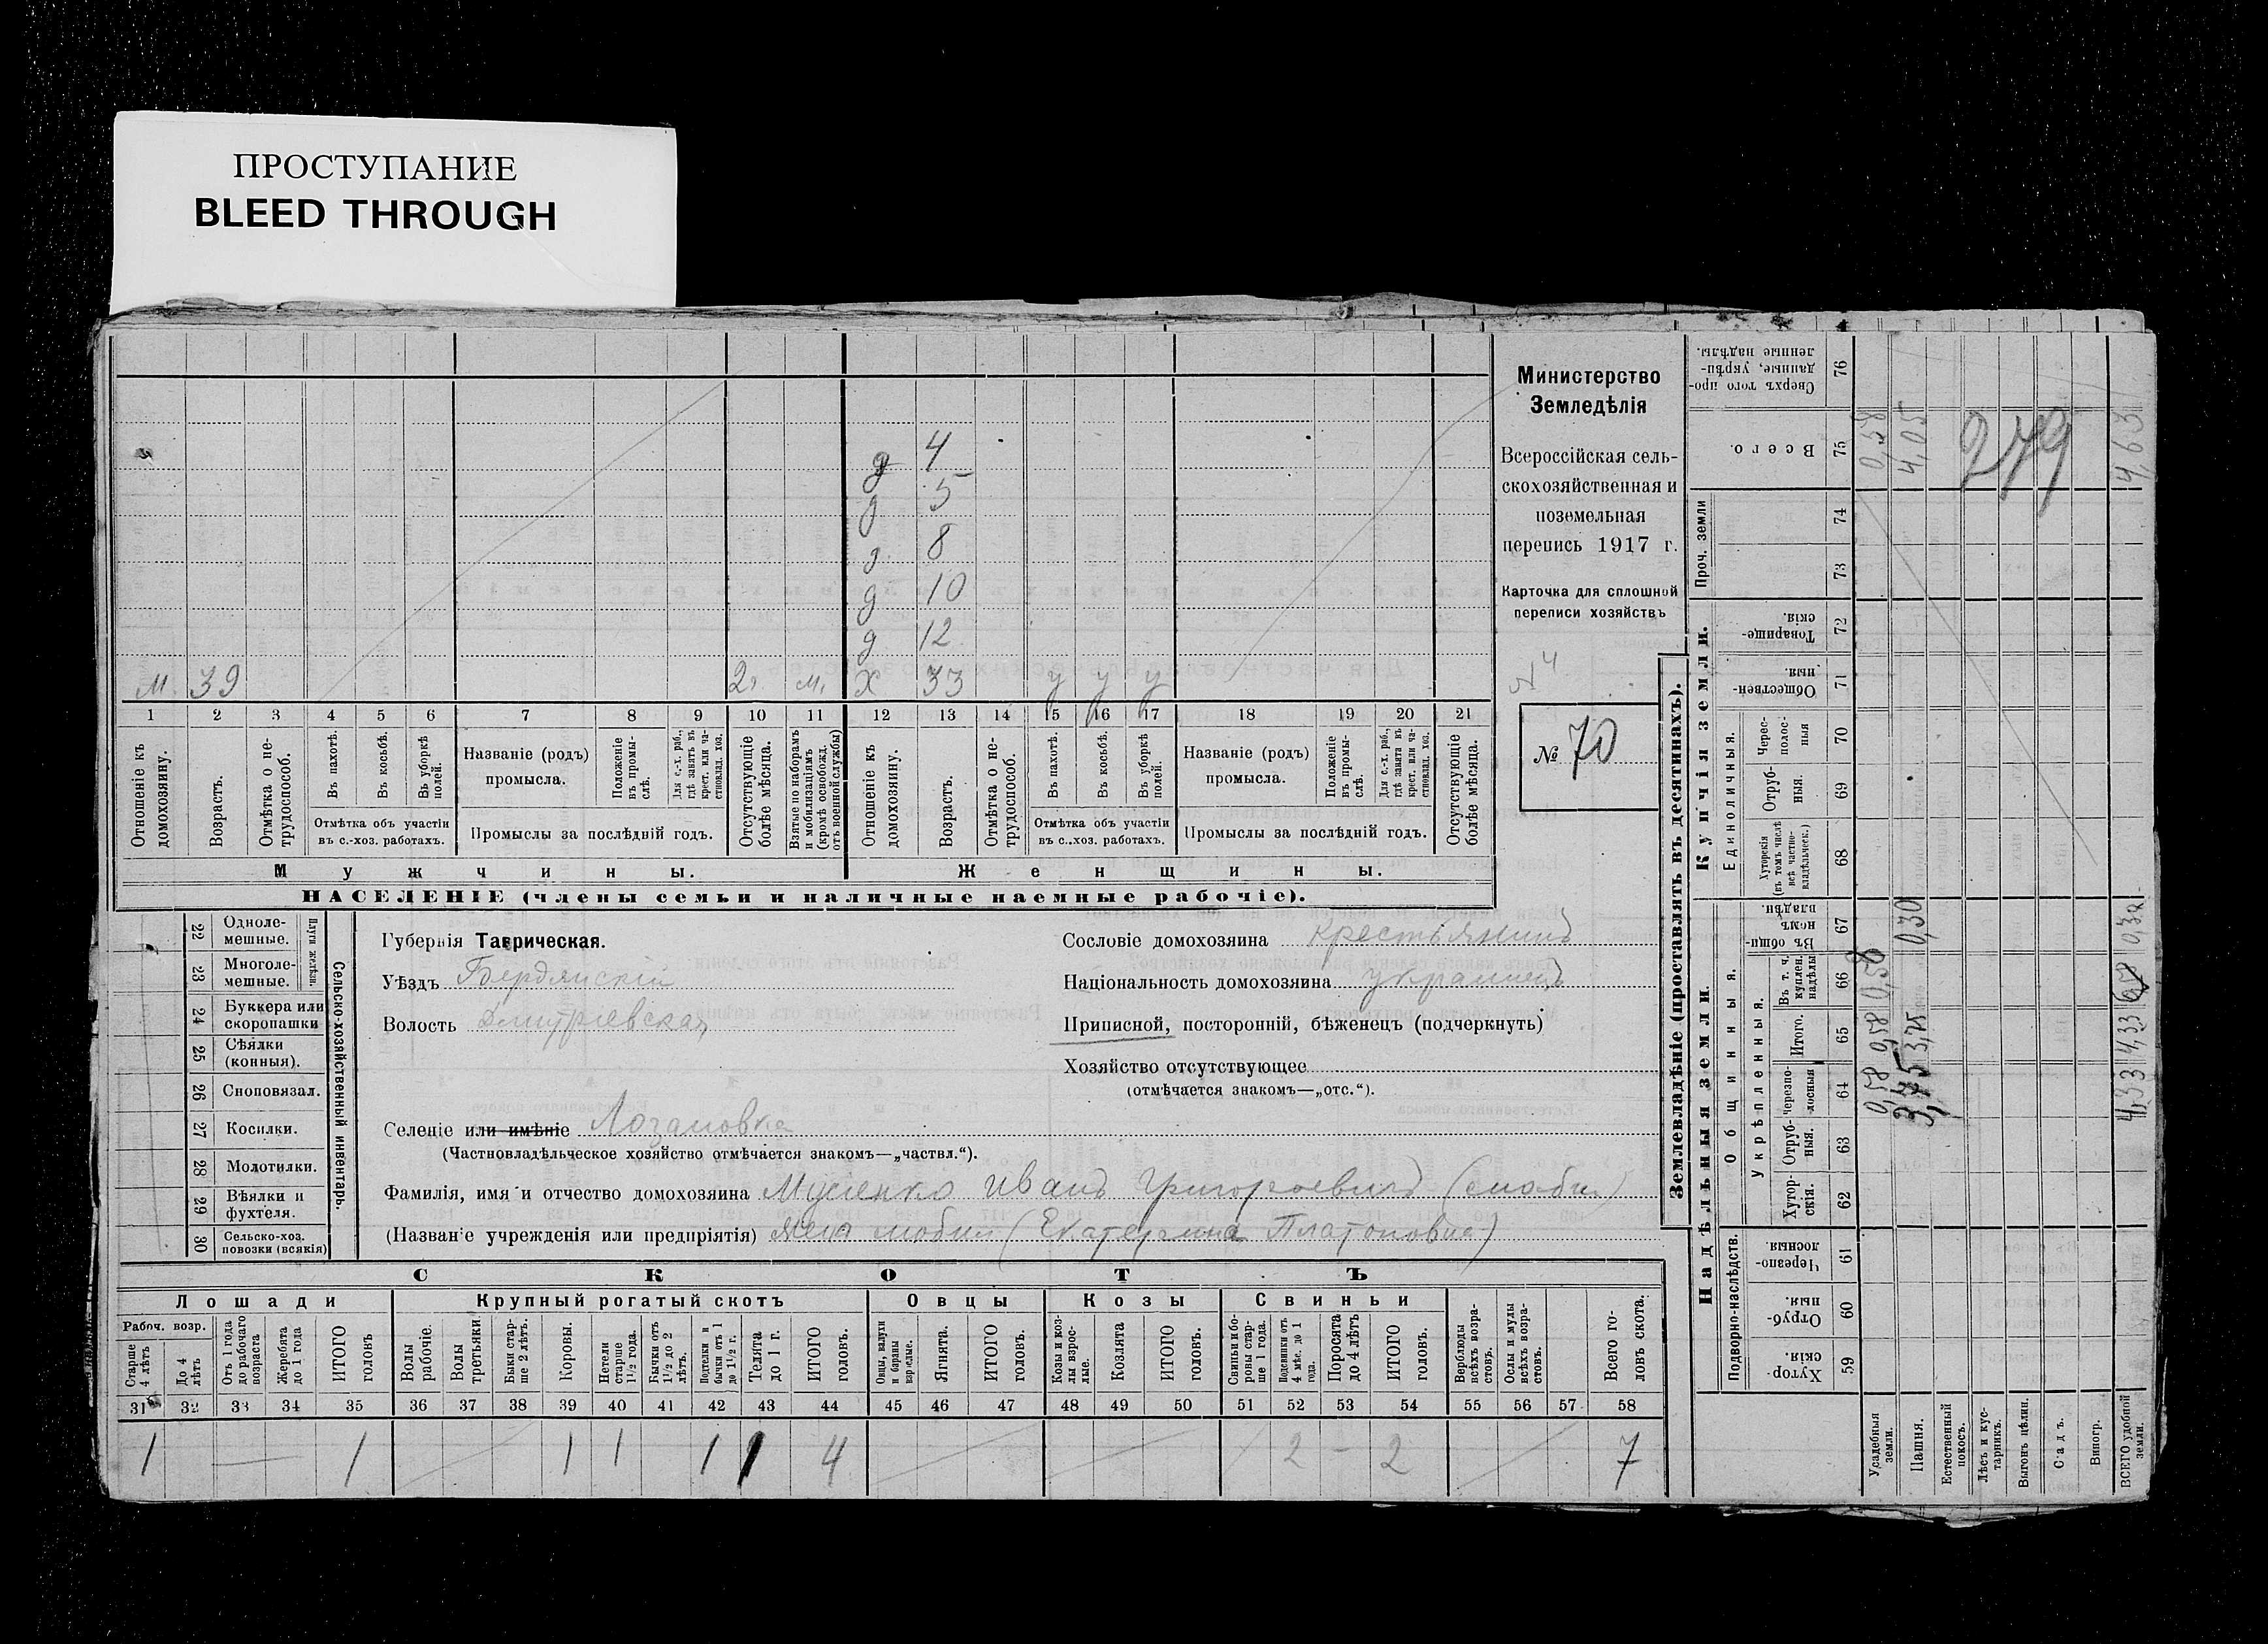 ПРОСТУПАНИЕ
BLEED THROUGH
д 4
д 5
д 8
д 10
д 12
м. 39 2г. м. Х 33 у у у
1 2 3 4 5 6 7 8 9 10 11 12 13 14 15 16 17 18 19 20 21
Отношеніе къ домохозяину.
Возрастъ.
Отмѣтка о не-трудоспособ.
Въ пахотѣ.
Въ косьбѣ.
Въ уборкѣ полей.
Отмѣтка объ участіи
въ с.-хоз. работахъ.
Названіе (родъ)
промысла.
Положеніе въ промы-слѣ.
Для с.-х. раб., гдѣ занятъ въ крест. или ча-стновлад. хоз.
Промыслы за послѣдній годъ.
Отсутствующіе болѣе мѣсяца.
Взятые по наборамъ и мобилизаціямъ (кромѣ освобожд. отъ военной службы)
Отношеніе къ домохозяину.
Возрастъ.
Отмѣтка о не-трудоспособ.
Въ пахотѣ.
Въ косьбѣ.
Въ уборкѣ полей.
Отмѣтка объ участіи
въ с.-хоз. работахъ.
Названіе (родъ)
промысла.
Положеніе въ промы-слѣ.
Для с.-х. раб., гдѣ занятъ въ крест. или ча-стновлад. хоз.
Промыслы за послѣдній годъ.
Отсутствующіе болѣе мѣсяца.
Мужчины. Женщины.
НАСЕЛЕНІЕ (члены семьи и наличные наемные рабочіе).
Министерство
Земледѣлія
Всероссійская сель-
скохозяйственная и
поземельная
перепись 1917 г.
Карточка для сплошной
переписи хозяйствъ
№ 70
22 Одноле-мешные.
23 Многоле-мешные.
Плуги желѣзн.
24 Буккера или скоропашки
25 Сѣялки (конныя).
26 Сноповязал.
27 Косилки.
28 Молотилки.
29 Вѣялки и фухтеля.
30 Сельско-хоз. повозки (всякія)
Сельско-хозяйственный инвентарь.
Губернія Таврическая.
Уѣздъ Бердянскій
Волость Дмитріевская
Сословіе домохозяина крестьянинъ
Національность домохозяина украинецъ
Приписной, посторонній, бѣженецъ (подчеркнуть)
Хозяйство отсутствующее
(отмѣчается знакомъ—„отс.“).
Селеніе или имѣніе Лозановка
(Частновладѣльческое хозяйство отмѣчается знакомъ—„частвл.“).
Фамилія, имя и отчество домохозяина Мусіенко Иванъ Григорьевичъ
(Названіе учрежденія или предпріятія) (Екатерина Платоновна)
СКОТЪ
Лошади Крупный рогатый скотъ Овцы Козы Свиньи
Рабоч. возр.
Старше 4 лѣтъ
До 4 лѣтъ
Отъ 1 года до рабочаго возраста
Жеребята до 1 года
ИТОГО головъ
Волы рабочіе.
Волы третьяки.
Быки стар-ше 2 лѣтъ.
Коровы.
Нетели старше 1½ года.
Бычки отъ 1½ до 2 лѣтъ.
Подтелки и бычки отъ 1 до 1½ г.
Телята до 1 г.
ИТОГО головъ.
Овцы, валухи и бараны взрослые.
Ягнята.
ИТОГО головъ.
Козы и коз-лы взрос-лые.
Козлята
ИТОГО головъ.
Свиньи и бо-ровы стар-ше 1 года.
Подсвинки отъ 4 мѣс. до 1 года.
Поросята до 4 лѣтъ
ИТОГО головъ.
Верблюды всѣхъ возра-стовъ.
Ослы и мулы всѣхъ возра-стовъ.
Всего го-ловъ скота.
31 32 33 34 35 36 37 38 39 40 41 42 43 44 45 46 47 48 49 50 51 52 53 54 55 56 57 58
1 — 1 1 1 1 1 4 2 — 2 7
Землевладѣніе (проставлять въ десятинахъ).
Надѣльныя земли. Купчія земли. Проч. земли
Подворно-наслѣдств.
Общинныя.
Укрѣпленныя.
Единоличныя.
Хутор-скія. 59
Отруб-ныя. 60
Черезпо-лосныя. 61
Хутор-скія. 62
Отруб-ныя. 63
Черезпо-лосныя 64
Итого. 65
Въ т. ч. куплен. надѣлы 66
Въ общи-номъ владѣн. 67
Хуторскія (въ томъ числѣ всѣ частно-владѣльческ.) 68
Отруб-ныя. 69
Черес-полос-ныя 70
Обществен-ныя. 71
Товарище-скія. 72
73
74
Всего. 75
Сверхъ того про-данные, укрѣп-ленные надѣлы. 76
Усадебныя земли. 0,58 0,58 0,58 0,58
Пашня. 3,75 3,75 0,30 4,05
Естественный покосъ.
Лѣсъ и кус-тарникъ.
Выгонъ цѣлин.
Садъ.
Виногр.
ВСЕГО удобной земли. 4,33 4,33 0,58 0,30 4,63
279